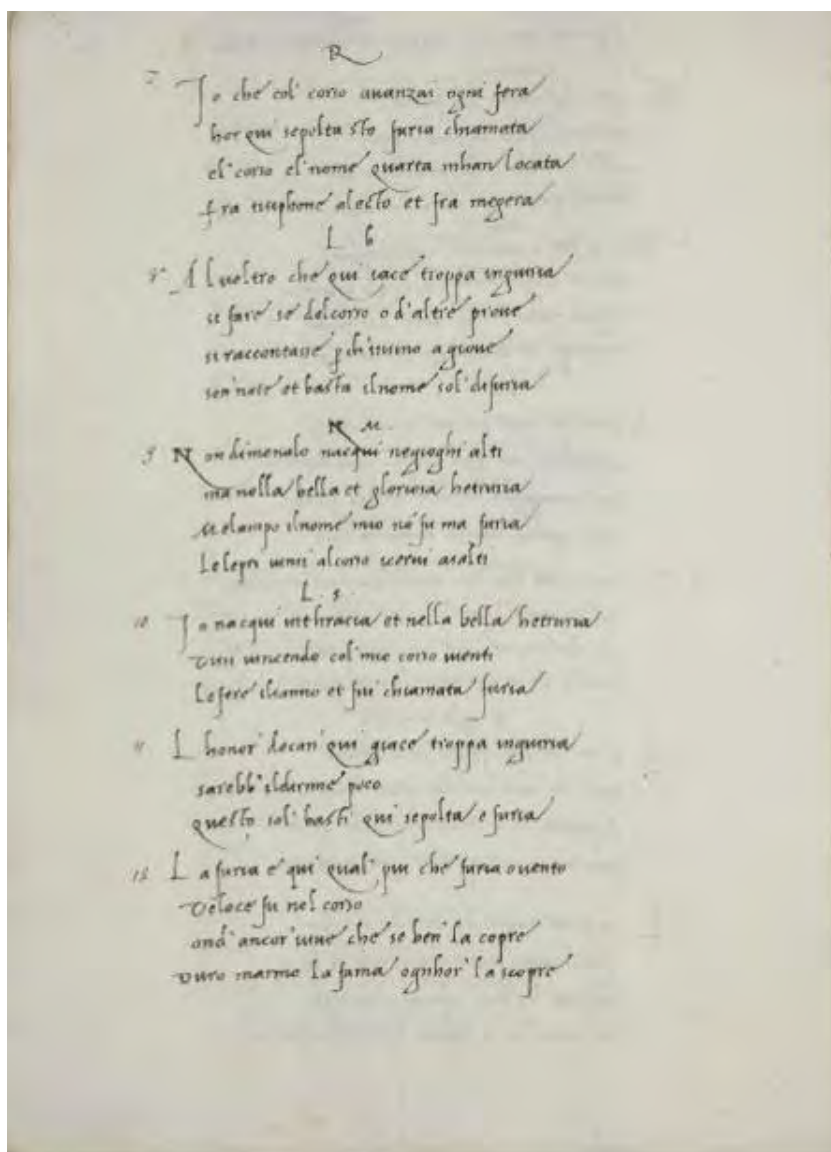 R
7 Io che col' corso auanzai ogni fera
hor qui sepolta sto furia chiamata
el' corso el' nome quarta mhan locata
fra tisiphone alecto et fra megera
L b
8 Al ueltro che qui iace troppa ingiuria
si fare se delcorso o d'altre proue
si raccontasse
son' note et basta ilnome sol' difuria
N M.
9 Non dimenalo nacqui negioghi alti
ma nella bella et gloriosa hetruria
Melampo ilnome mio nō fu ma furia
Le lepri uinsi alcorso icerui asalti
L. s.
10 Io nacqui inthracia et nella bella hetruria
uincendo col' mio corso uenti
Le fere et fui chiamata furia
11 L honor' decani qui giace troppa ingiuria
sarebb' ildirme poco
questo sol' basti qui sepolta e furia
12 La furia e qui qual' piu che furia o uento
Veloce fu nel corso
ond' ancor' uiue che se ben' la copre
Duro marmo la fama ognhor' la scopre